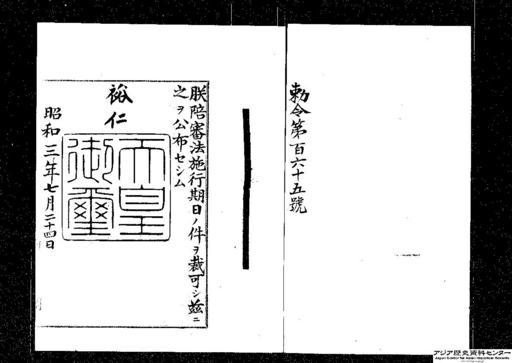 勅令第百六十五號
朕陪審法施行期日ノ件ヲ裁可シ茲ニ
之ヲ公布セシム
裕仁
天皇
御璽
昭和三年七月二十四日
アジア歴史資料センター
Japan Center for Asian Historical Records